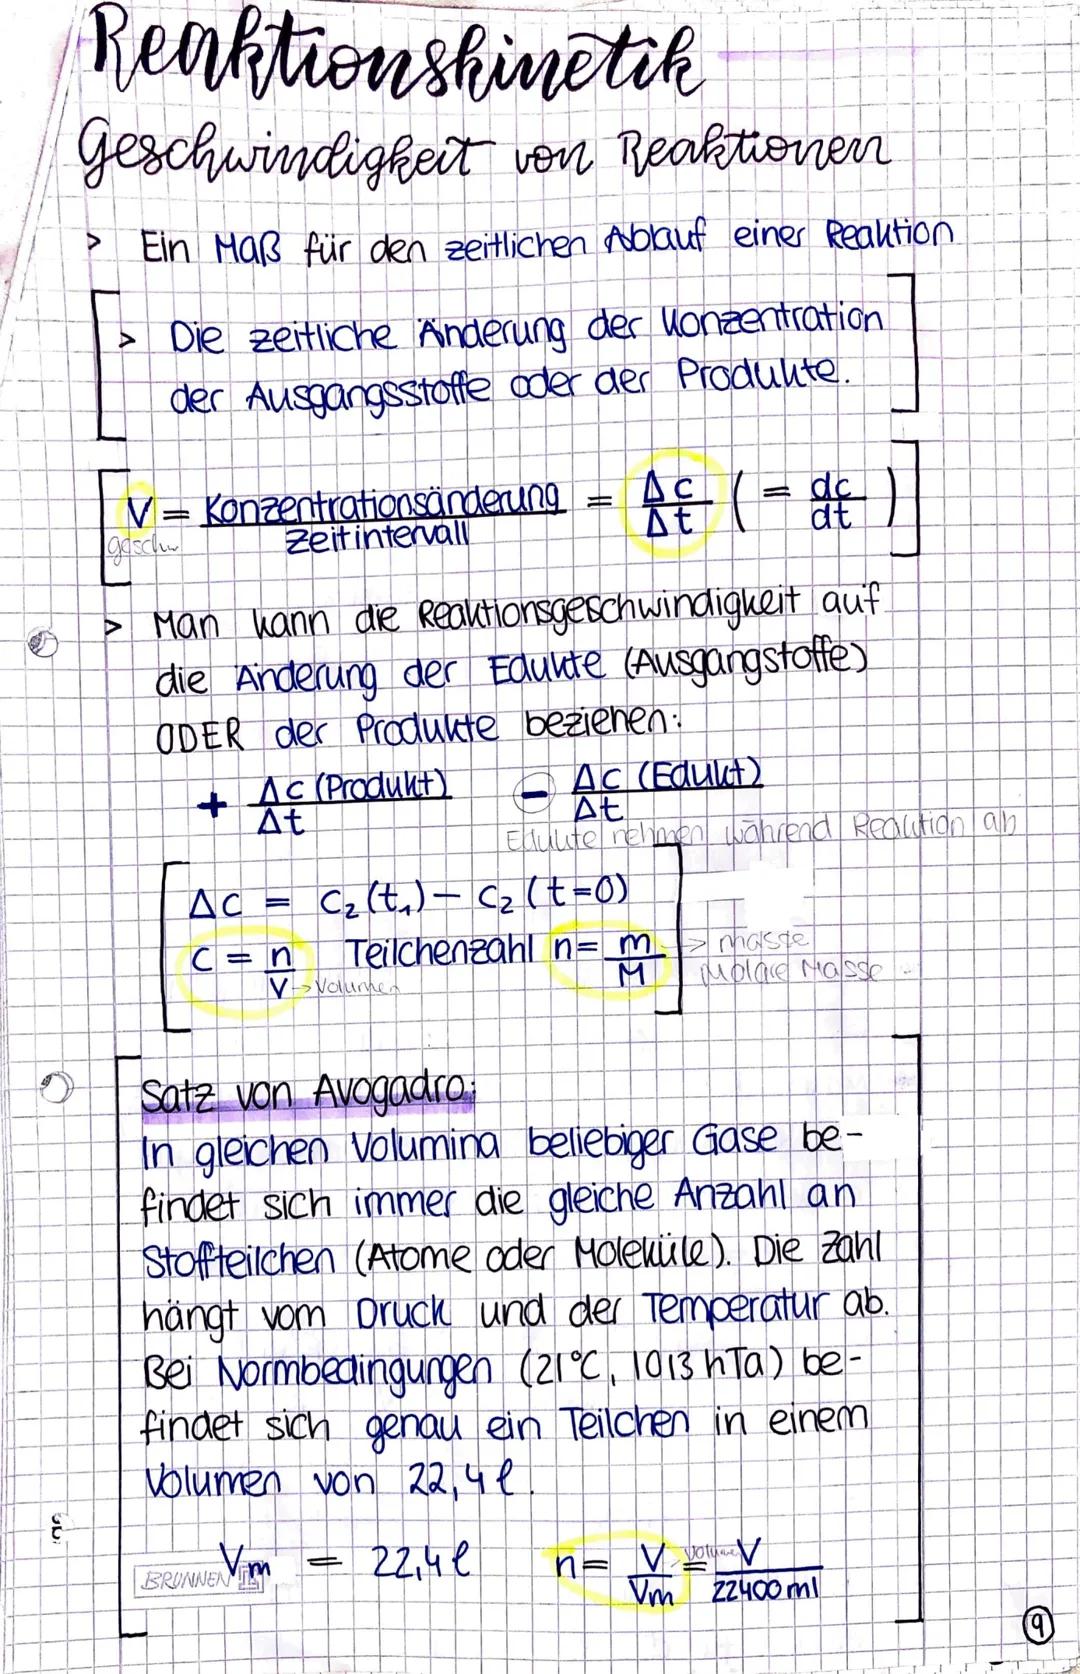 Reaktionskinetik
Geschwindigkeit von Reaktionen
> Ein Maß für den zeitlichen Ablauf einer Reaktion
> Die zeitliche Änderung der Konzentration
der Ausgangsstoffe oder der Produkte.
V = Konzentrationsänderung / Zeitintervall = Δc / Δt ( = dc / dt )
geschw
> Man kann die Reaktionsgeschwindigkeit auf
die Änderung der Edukte (Ausgangstoffe)
ODER der Produkte beziehen:
+ Δc (Produkt) / Δt − Δc (Edukt) / Δt
Edukte nehmen während Reaktion ab
Δc = c₂(t₁) − c₂(t=0)
c = n / V → Volumen Teilchenzahl n = m / M > masse
Molare Masse
Satz von Avogadro:
In gleichen Volumina beliebiger Gase be-
findet sich immer die gleiche Anzahl an
Stoffteilchen (Atome oder Moleküle). Die Zahl
hängt vom Druck und der Temperatur ab.
Bei Normbedingungen (21°C, 1013 hTa) be-
findet sich genau ein Teilchen in einem
Volumen von 22,4 l.
Vm = 22,4 l n = V / Vm > Volume = V / 22400 ml
BRUNNEN
9